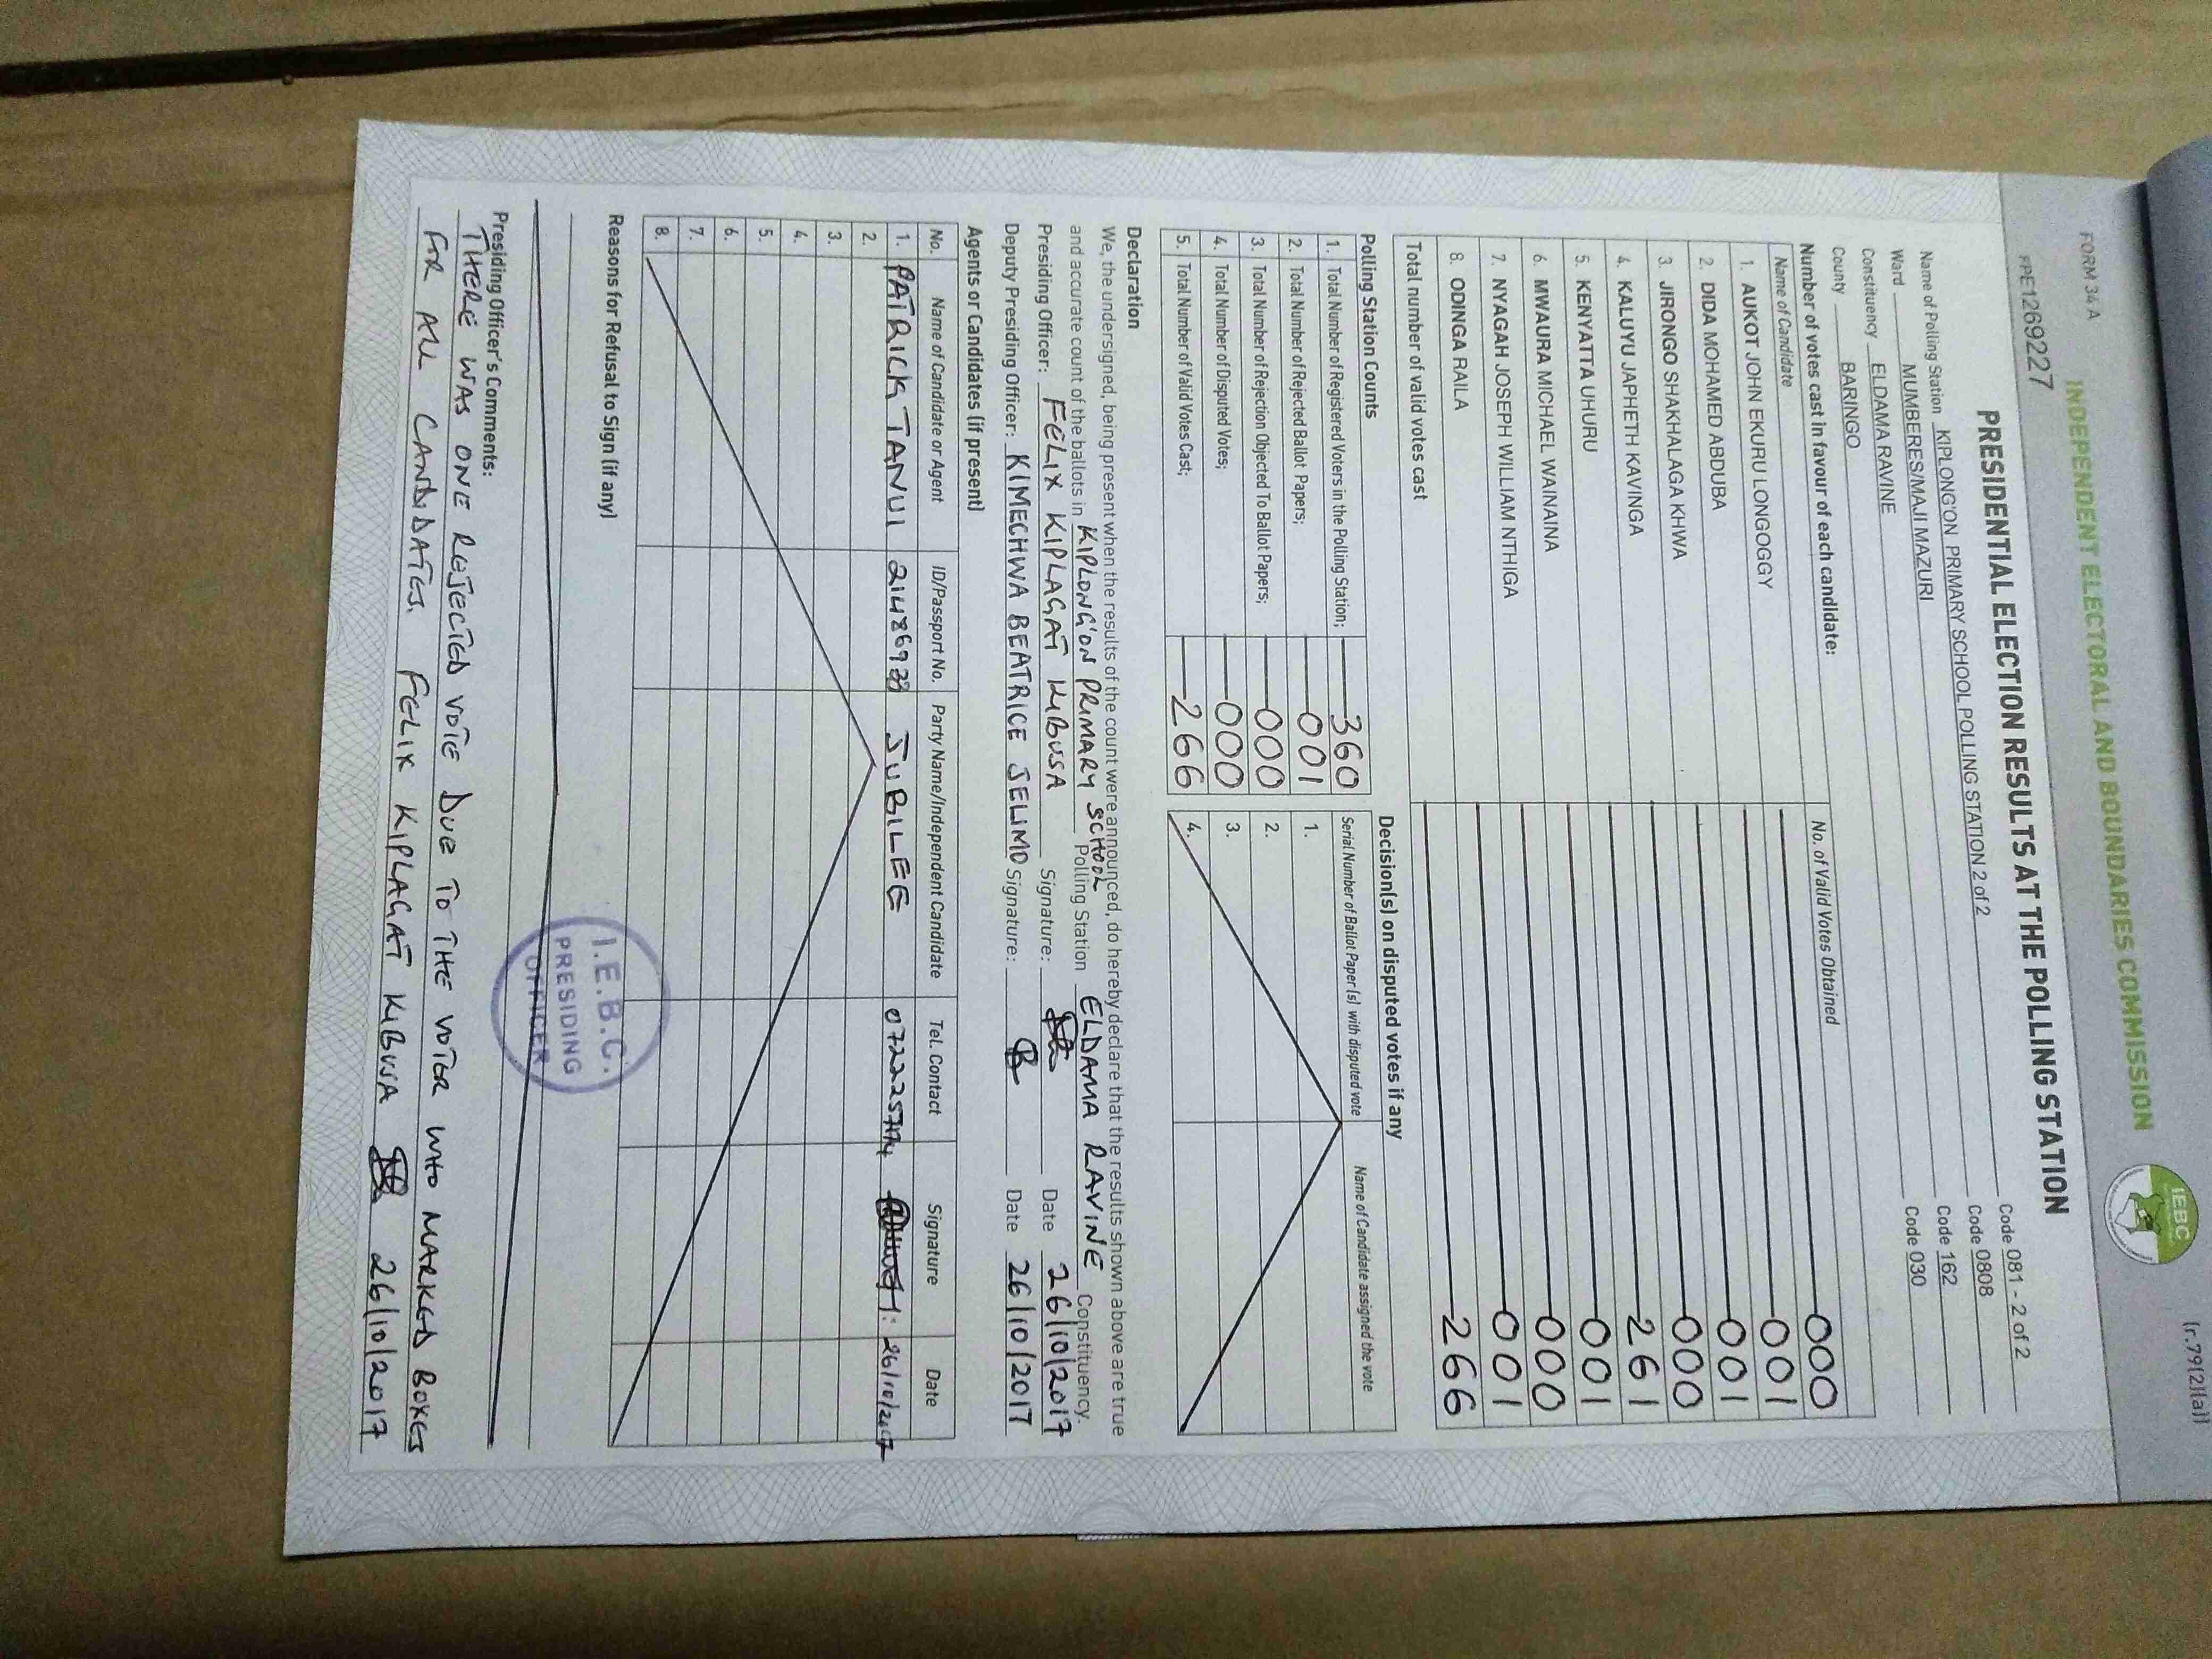 FORM 34 A (r.79(2)(a))
INDEPENDENT ELECTORAL AND BOUNDARIES COMMISSION
IEBC
PPE1269227
PRESIDENTIAL ELECTION RESULTS AT THE POLLING STATION
Name of Polling Station KIPLONG'ON PRIMARY SCHOOL POLLING STATION 2 of 2 Code 081 - 2 of 2
Ward MUMBERES/MAJI MAZURI Code 0808
Constituency ELDAMA RAVINE Code 162
County BARINGO Code 030
Number of votes cast in favour of each candidate:
Name of Candidate No. of Valid Votes Obtained
1. AUKOT JOHN EKURU LONGOGGY 000
2. DIDA MOHAMED ABDUBA 001
3. JIRONGO SHAKHALAGA KHWA 001
4. KALUYU JAPHETH KAVINGA 000
5. KENYATTA UHURU 261
6. MWAURA MICHAEL WAINAINA 001
7. NYAGAH JOSEPH WILLIAM NTHIGA 000
8. ODINGA RAILA 001
Total number of valid votes cast 266
Polling Station Counts
1. Total Number of Registered Voters in the Polling Station; 360
2. Total Number of Rejected Ballot Papers; 001
3. Total Number of Rejection Objected To Ballot Papers; 000
4. Total Number of Disputed Votes; 000
5. Total Number of Valid Votes Cast; 266
Decision(s) on disputed votes if any
Serial Number of Ballot Paper (s) with disputed vote Name of Candidate assigned the vote
1.
2.
3.
4.
Declaration
We, the undersigned, being present when the results of the count were announced, do hereby declare that the results shown above are true
and accurate count of the ballots in KIPLONG'ON PRIMARY SCHOOL Polling Station ELDAMA RAVINE Constituency.
Presiding Officer: FELIX KIPLAGAT KIBUSA Signature: Date 26/10/2017
Deputy Presiding Officer: KIMECHWA BEATRICE JELIMO Signature: Date 26/10/2017
Agents or Candidates (if present)
No. Name of Candidate or Agent ID/Passport No. Party Name/Independent Candidate Tel. Contact Signature Date
1. PATRICK TANUI JUBILEE 26/10/2017
2.
3.
4.
5.
6.
7.
8.
Reasons for Refusal to Sign (if any)
I.E.B.C.
PRESIDING
OFFICER
Presiding Officer's Comments:
THERE WAS ONE REJECTED VOTE DUE TO THE VOTER WHO MARKED BOXES
FOR ALL CANDIDATES. FELIX KIPLAGAT KIBUSA 26/10/2017